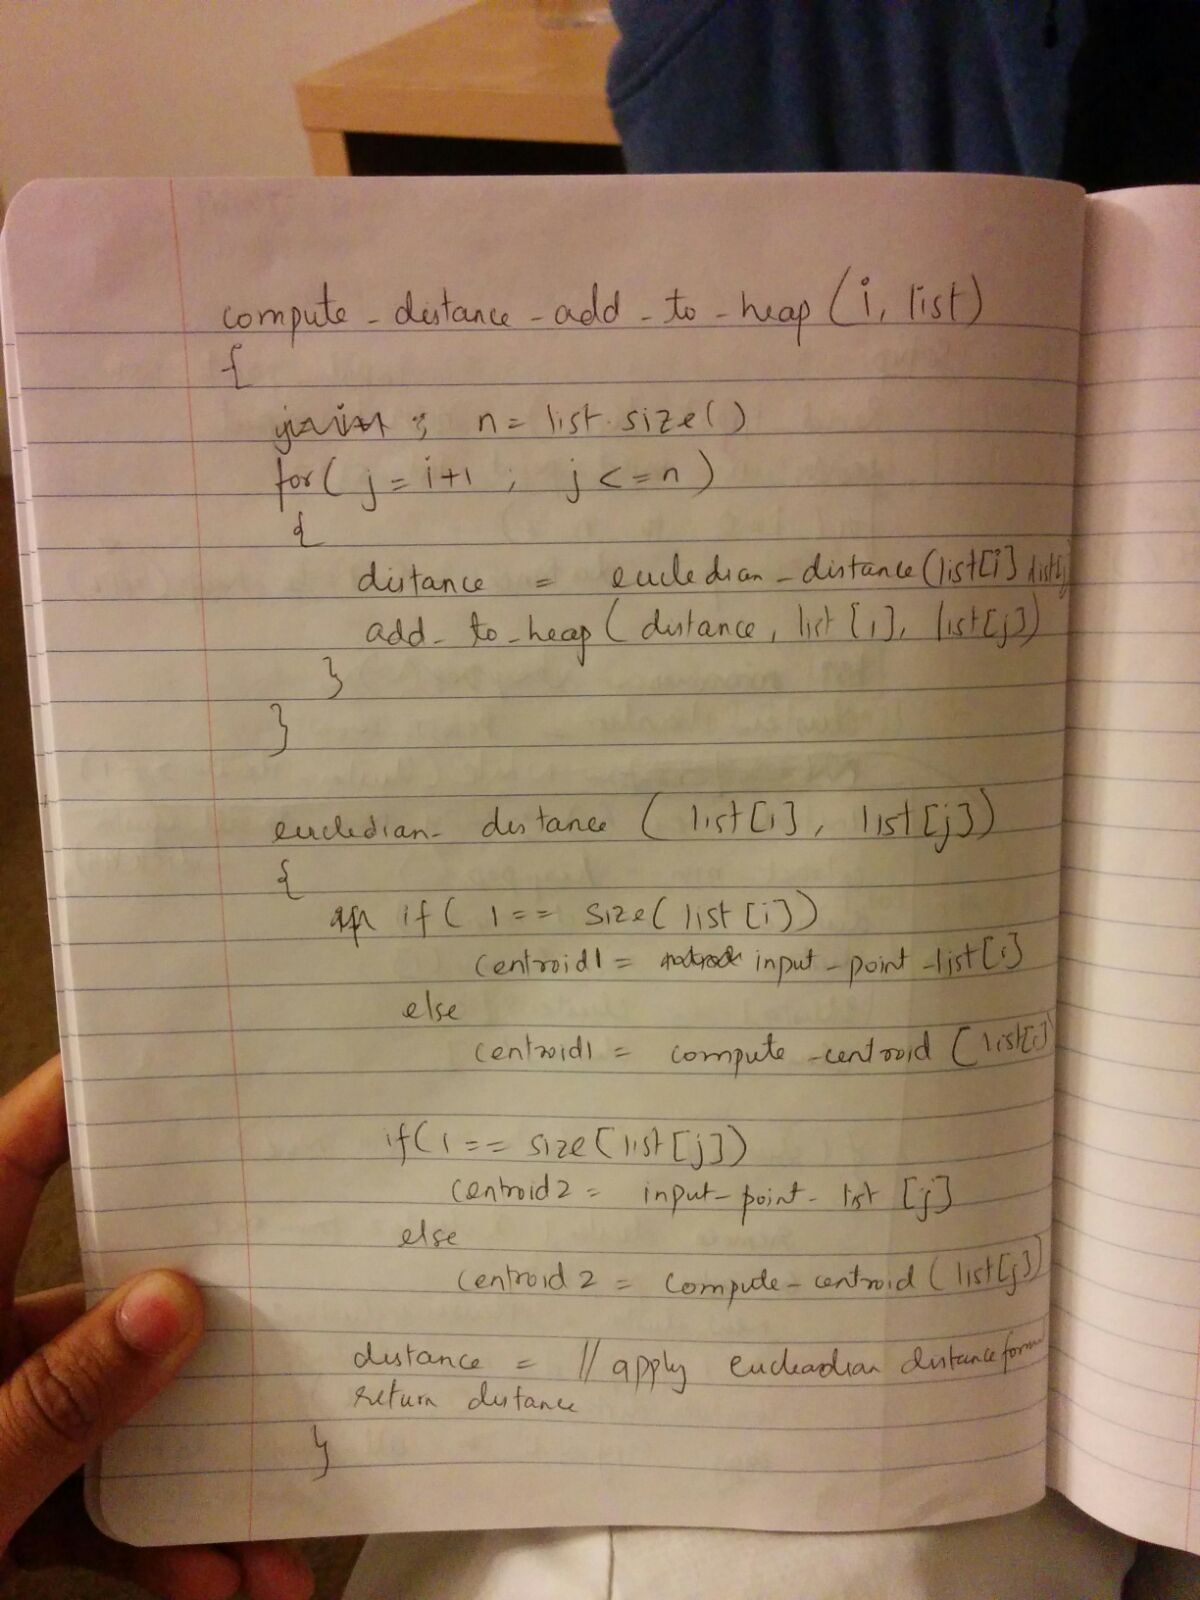 compute_distance_add_to_heap (i, list)
{
; n = list.size()
for( j = i+1 ; j <= n )
{
distance = eucledian_distance(list[i] list[j]
add_to_heap( distance, list [i], list[j])
}
}
eucledian_distance ( list[i], list[j])
{
if( 1 == size( list [i])
centroid1 = input_point_list[i]
else
centroid1 = compute_centroid (list[i]
if( 1 == size (list[j])
centroid2 = input_point_list [j]
else
centroid 2 = compute_centroid (list[j])
distance = // apply distance form
return distance
}